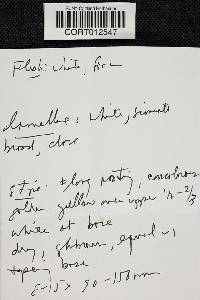 CORT012547
Flesh: white, firm
Lamellae: white, sinuate
broad, close
stipe: ± long rooting,
golden yellow over upper ½-2/3
white at base
dry, equal
tapering base
8-15 x 90-150 mm